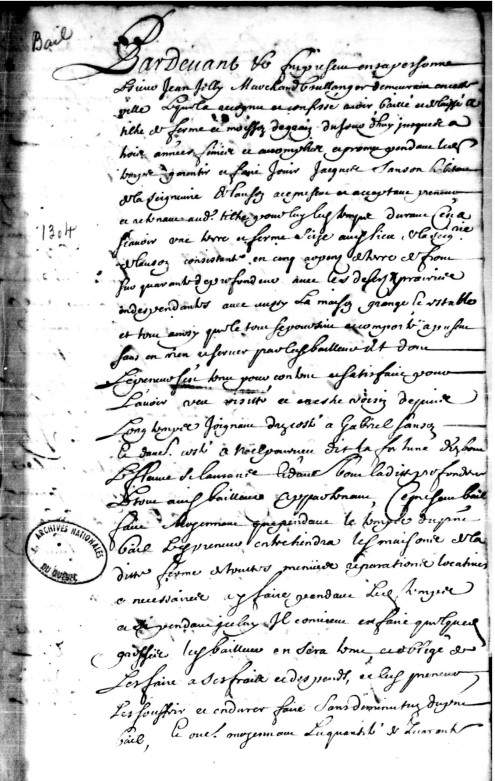 Bail
Pardevant &c fut present en sa personne
Sieur Jean Jolly Marchand boullanger demeurant en cette
ville Lequel a recognu et confesse avoir baillé et delaissé a
tiltre de ferme et moisson de grain du jourd'huy jusques a
trois années finies et accomplies et promet pendant led
temps garentir et faire Jouir Jacques Sanson
de la Seigneurie de Lauson a ce present et acceptant preneur
et retenant aud. tiltre pour luy led temps durant C'est a
1304
scavoir une terre et ferme size aud lieu de la seig.rie
de Lauson consistant en cinq arpens de terre de front
sur quarante de profondeur avec les desers prairies
en dependantes avec aussy La maison grange et estable
et tout ainsy que le tout se poursuit et comporte a present
sans en rien reserver par led bailleur et dont
Le preneur s'est tenu pour content et satisfait pour
L'avoir veu visitté et estre voisin depuis
Long temps Joignant d'un costé a Gabriel Sanson
et d'autre costé a Noel dit la fortune d'un bout
Le fleuve St laurance et d'autre bout lad profondeur
Le tout aud bailleur appartenant Ce present bail
fait Moyennant que pendant le temps du pnt
bail Led preneur entretiendra les maisons de la
ditte ferme de touttes menües reparations locatives
et necessaires a y faire pendant Led temps
et pendant iceluy Il convient en faire quelques
grosses led bailleur en sera tenu et obligé de
Les faire a ses frais et despends, et led preneur
Les souffrir et endurer faire Sans diminution du pnt
bail, et outre moyennant La quantité de Quarante
ARCHIVES NATIONALES
DU QUÉBEC